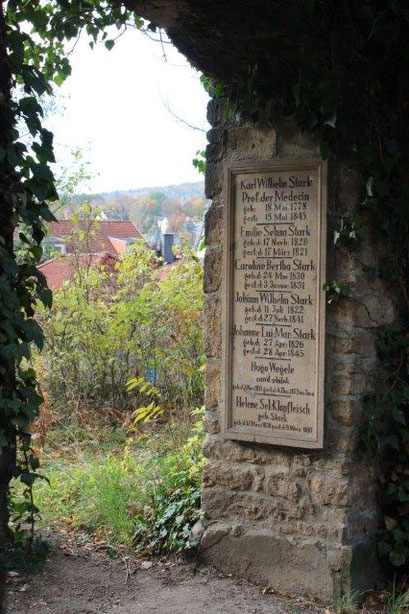 Karl Wilhelm Stark
Prof. der Medecin
geb. 18 Mai 1778
gest. 15 Mai 1845
Emilie Selma Stark
geb.d. 17 Novb. 1820
gest.d. 17 März 1821
Caroline Bertha Stark
geb.d. 24 Mai 1830
gest.d. 3 1831
Johann Wilhelm Stark
geb.d. 11 Juli 1822
gest.d. 27 Novb. 1841
Johanne Lui. Mar. Stark
geb.d. 27 Apr. 1826
gest.d. 28 Apr. 1845
Hugo Wegele
cand. philol.
Helene Sel. Klopfleisch
geb. Stark
geb.d. 12 März 1858 gest.d. 9 März